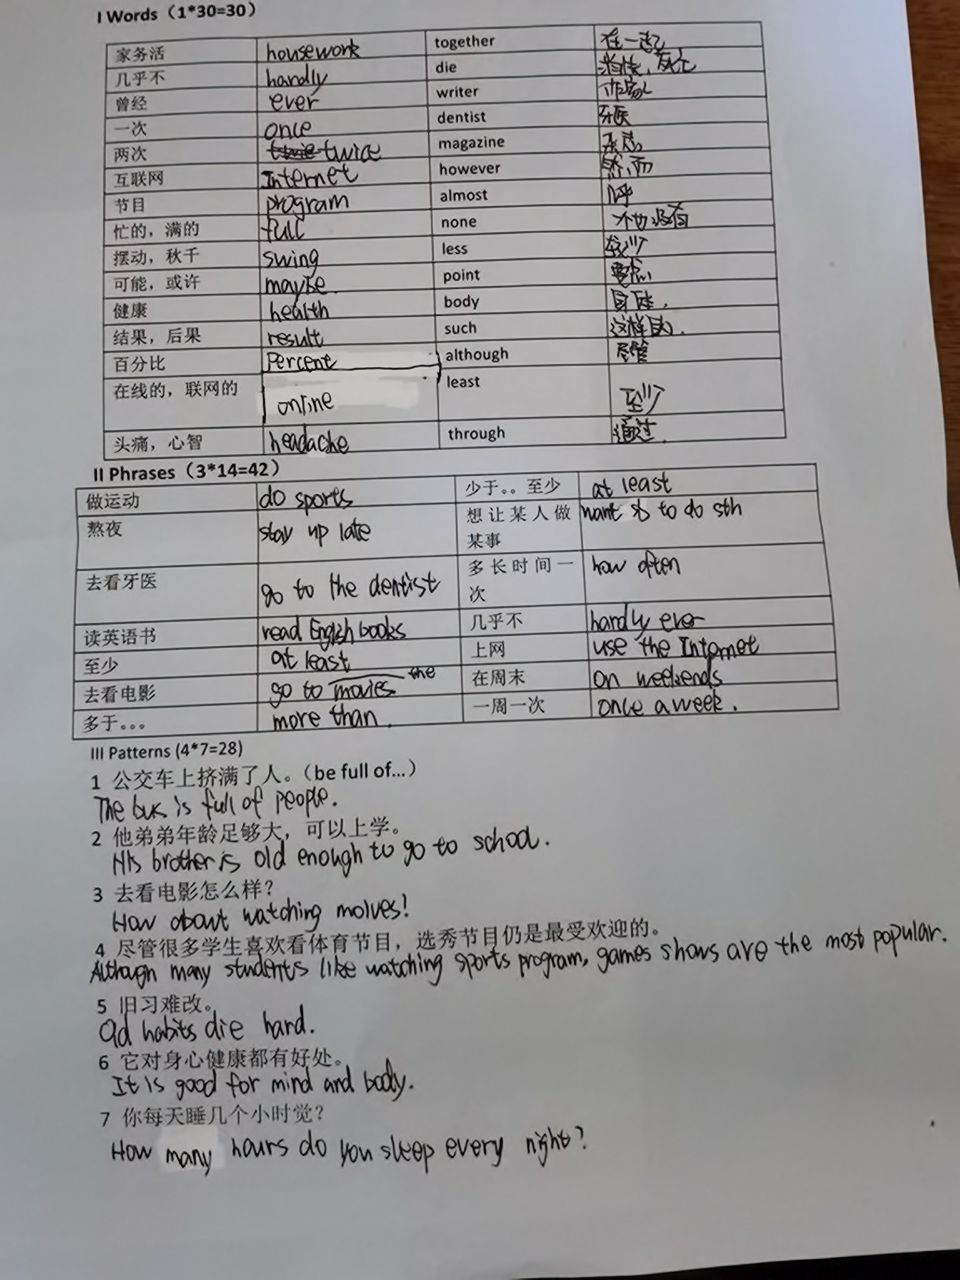 I Words（1*30=30）
家务活 housework together 在一起
几乎不 hardly die 消失，死亡
曾经 ever writer 作家
一次 once dentist 牙医
两次 twice magazine 杂志
互联网 Internet however 然而
节目 program almost
忙的，满的 full none
摆动，秋千 swing less 较少
可能，或许 maybe point 要点
健康 health body 身体.
结果，后果 result such 这样的.
百分比 Percent although 尽管
在线的，联网的 online least 至少
头痛，心智 headache through 通过.
II Phrases（3*14=42）
做运动 do sports 少于。。至少 at least
熬夜 stay up late 想让某人做某事 want sb to do sth
去看牙医 go to the dentist 多长时间一次 how often
读英语书 read English books 几乎不 hardly ever
至少 at least 上网 use the Internet
去看电影 go to movies the 在周末 on weekends
多于。。。 more than. 一周一次 once a week.
III Patterns (4*7=28)
1 公交车上挤满了人。（be full of...）
The bus is full of people.
2 他弟弟年龄足够大，可以上学。
His brother is old enough to go to school.
3 去看电影怎么样？
How about watching molves!
4 尽管很多学生喜欢看体育节目，选秀节目仍是最受欢迎的。
Although many students like watching sports program, games shows are the most popular.
5 旧习难改。
Old habits die hard.
6 它对身心健康都有好处。
It is good for mind and body.
7 你每天睡几个小时觉？
How many hours do you sleep every night?